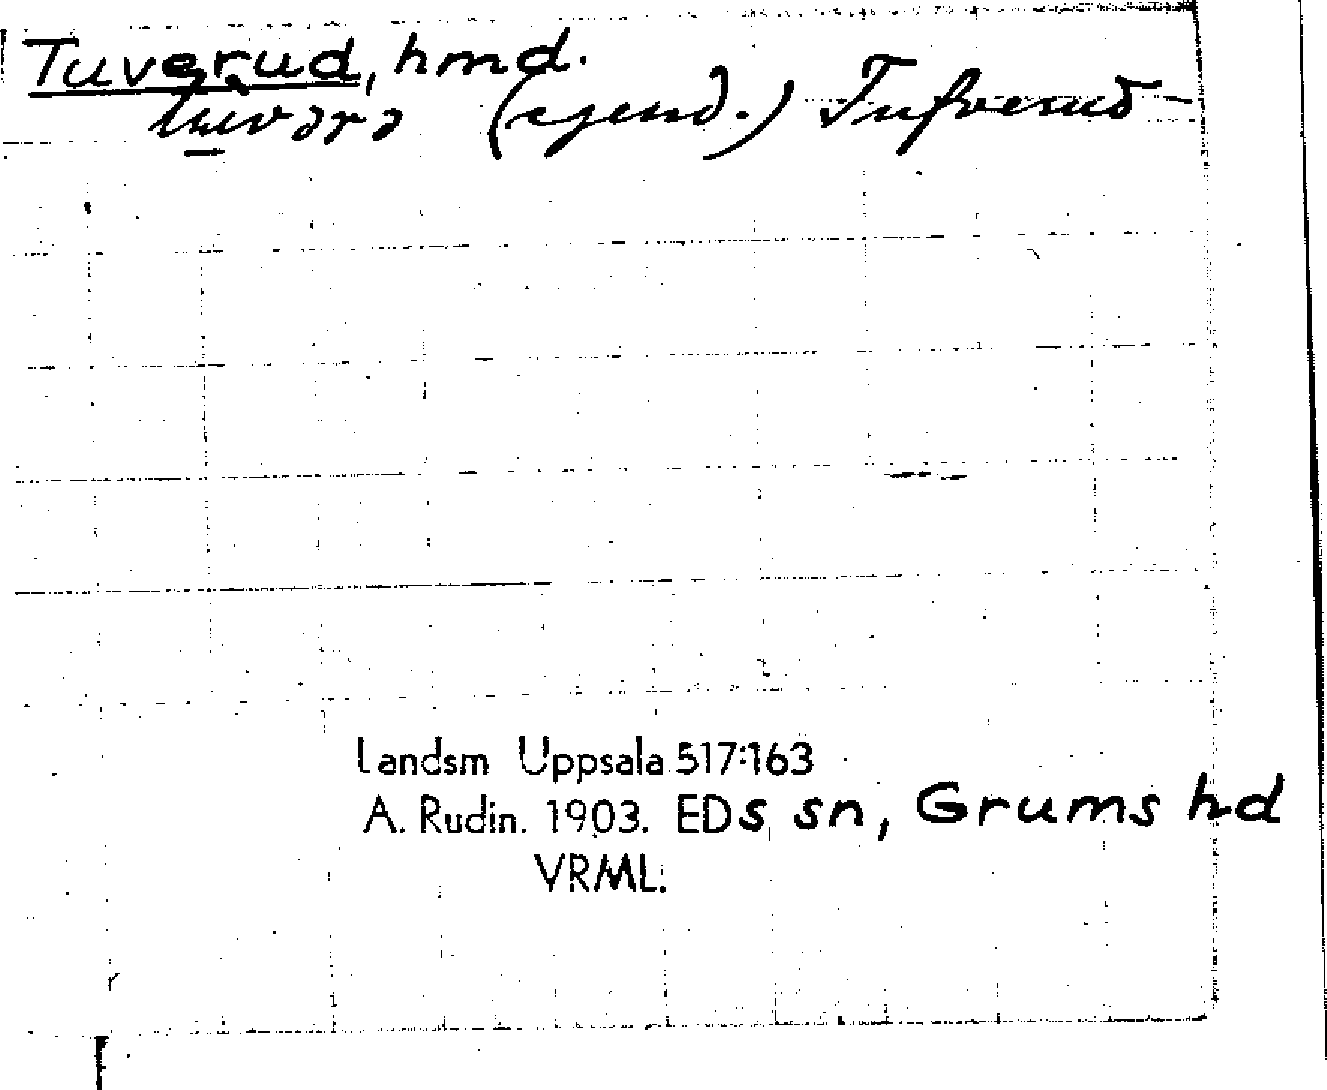 Tuverud, hmd.
tuvərə (egend.) Tufverud
Landsm Uppsala 517:163
A. Rudin. 1903. EDs sn, Grums hd
VRML.